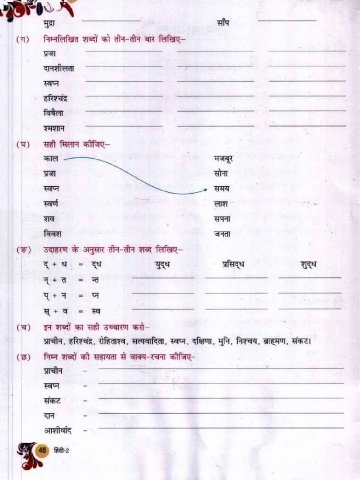 मुद्रा साँप
(ग) निम्नलिखित शब्दों को तीन-तीन बार लिखिए–
प्रजा
दानशीलता
स्वप्न
हरिश्चंद्र
विषैला
श्मशान
(घ) सही मिलान कीजिए–
काल मजबूर
प्रजा सोना
स्वप्न समय
स्वर्ण लाश
शव सपना
विवश जनता
(ङ) उदाहरण के अनुसार तीन-तीन शब्द लिखिए–
द् + ध = द्ध युद्ध प्रसिद्ध शुद्ध
न् + त = न्त
प् + न = प्न
स् + व = स्व
(च) इन शब्दों का सही उच्चारण करो–
प्राचीन, हरिश्चंद्र, रोहिताश्व, सत्यवादिता, स्वप्न, दक्षिणा, मुनि, निश्चय, ब्राह्मण, संकट।
(छ) निम्न शब्दों की सहायता से वाक्य-रचना कीजिए–
प्राचीन –
स्वप्न –
संकट –
दान –
आशीर्वाद –
48 हिंदी-2